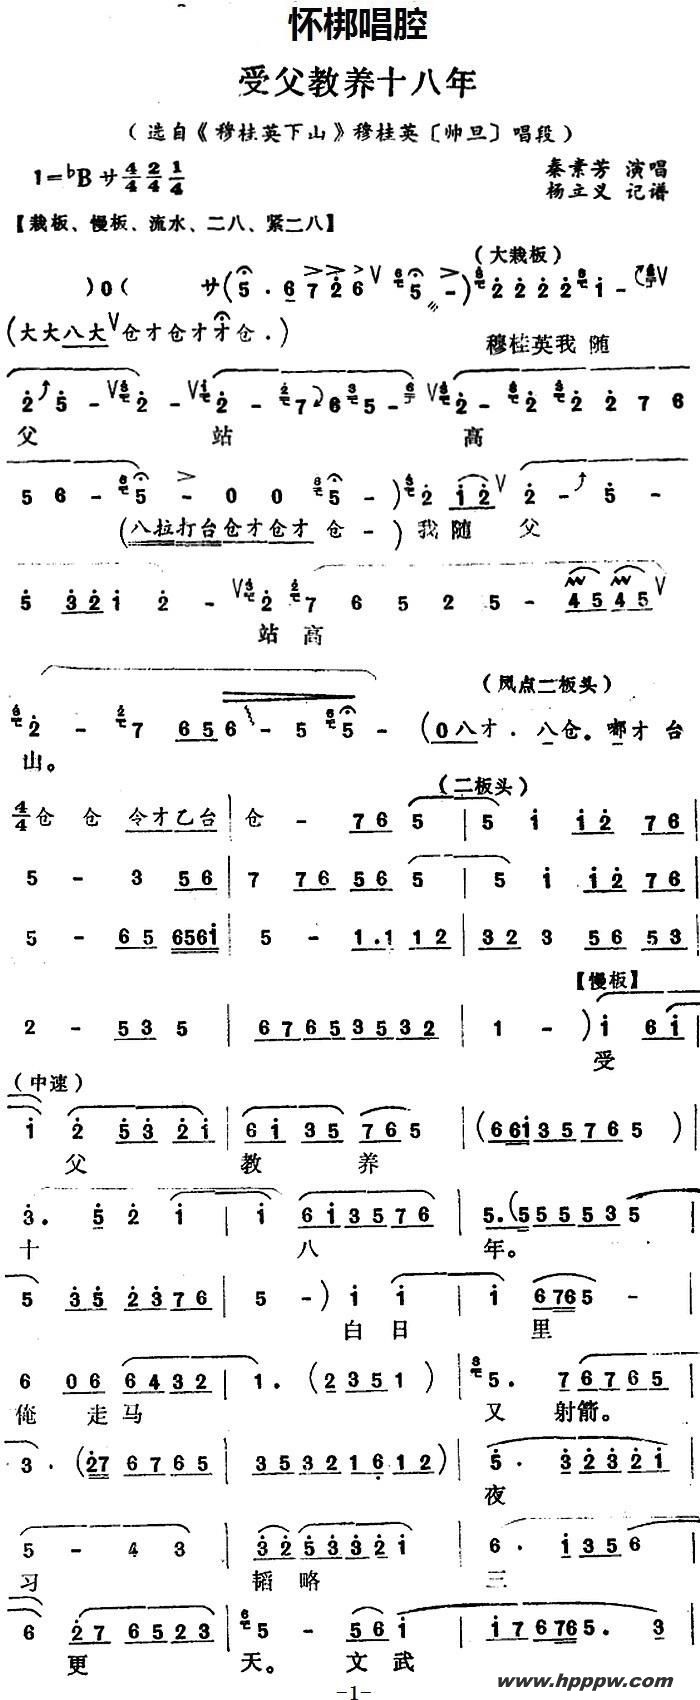 怀梆唱腔
受父教养十八年
(选自《穆桂英下山》穆桂英〔帅旦〕唱段)
1=♭B サ 4/4 2/4 1/4
秦素芳 演唱
杨立义 记谱
【栽板、慢板、流水、二八、紧二八】
(大栽板)
(大大八大 仓才仓才才仓.)
穆桂英我 随
父 站 高
(八拉打台仓才仓才 仓 -) 我随 父
站高
(凤点二板头)
(0八才. 八仓。嘟才 台
山。
(二板头)
4/4 仓 仓 令才乙台 | 仓 - 7 6 5 | 5 i i 2 7 6
5 - 3 5 6 | 7 7 6 5 6 5 | 5 i i 2 7 6
5 - 6 5 6 5 6 i | 5 - 1.1 1 2 | 3 2 3 5 6 5 3
【慢板】
2 - 5 3 5 | 6 7 6 5 3 5 3 2 | 1 - ) i 6 i
受
(中速)
i 2 5 3 2 i | 6 i 3 5 7 6 5 | (6 6 i 3 5 7 6 5)
父 教 养
3. 5 2 i | i 6 i 3 5 7 6 | 5.(5 5 5 5 3 5
十 八 年。
5 3 5 2 3 7 6 | 5 - ) i i | i 6 7 6 5 -
白 日 里
6 0 6 6 4 3 2 | 1. (2 3 5 1) | 5. 7 6 7 6 5
俺 走 马 又 射箭。
3. (2 7 6 7 6 5 | 3 5 3 2 1 6 1 2) | 5. 3 2 3 2 i
夜
5 - 4 3 | 3 2 5 3 3 2 i | 6. i 3 5 6
习 韬 略 三
6 2 7 6 5 2 3 | 5 - 5 6 i | i 7 6 7 6 5. 3
更 天。 文 武
-1-
www.hpppw.com